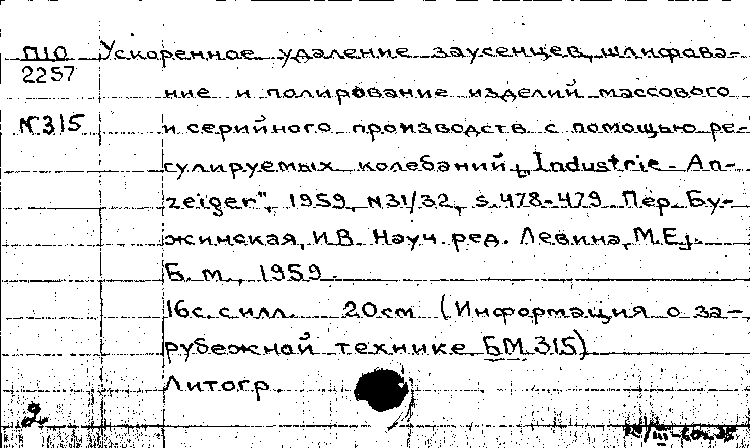 П10 Ускоренное удаление заусенцев, шлифова-
2257
ние и полирование изделий массового
N315 и серийного производств с помощью ре-
гулируемых колебаний. „Industrie-An-
zeiger", 1959, N31/32, s.478-479. Пер. Бу-
жинская, И.В. Науч. ред. Левина, М.Е.
Б. м., 1959.
16с. с илл. 20см (Информация о за-
рубежной технике БМ 315)
Литогр.
2